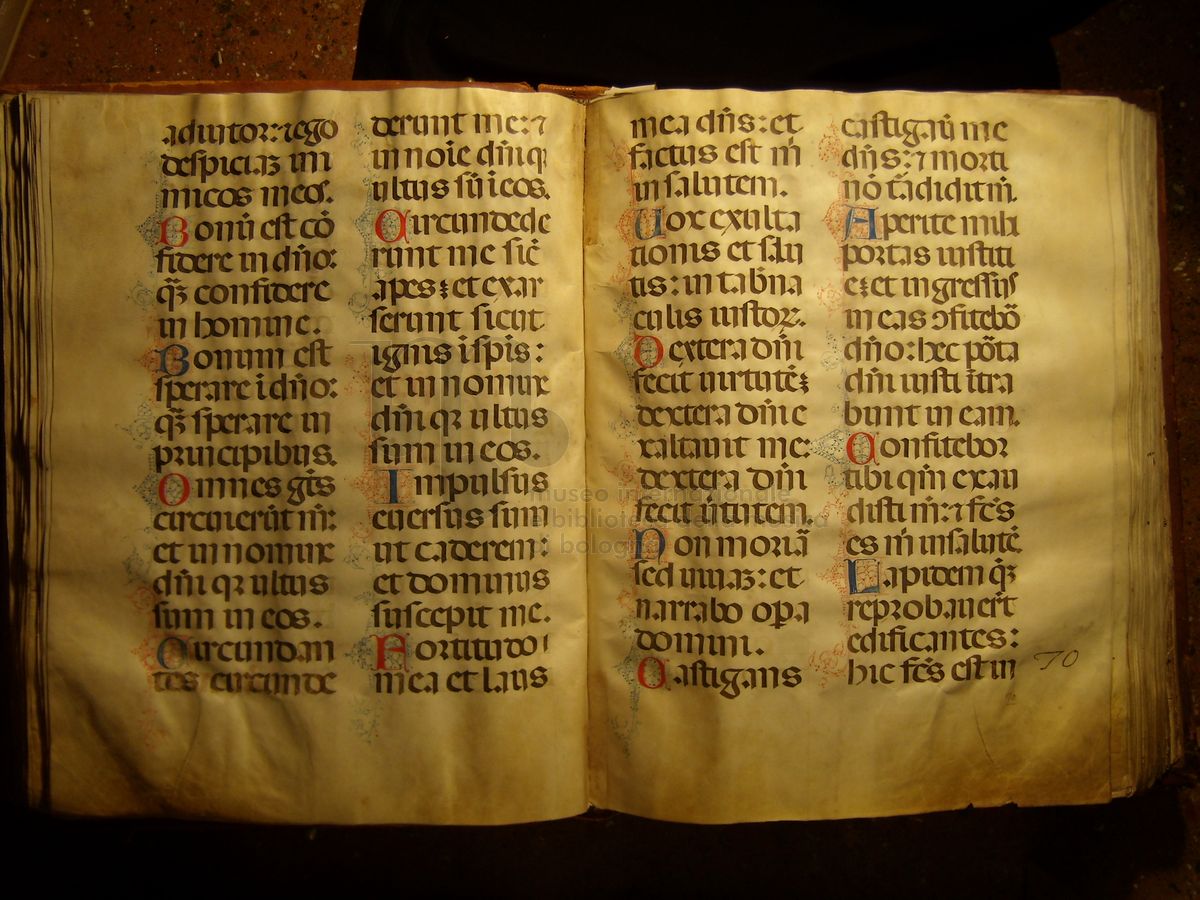 adiutor: ⁊ ego
despiciaʒ ini
micos meos.
Bonū est cō
fidere in dño:
qʒ̃ confidere
in homine.
Bonum est
sperare ī dño:
qʒ̃ sperare in
principibus.
Omnes gẽs
circuierūt m̄:
et in nomine
dñi qꝛ ultus
sum in eos.
Circundan
tes circunde
derunt me: ⁊
in noīe dñi q
ultus sū ī eos.
Circundede
runt me sic̄
apes: et exar
serunt sicut
ignis ī spīs:
et in nomine
dñi qꝛ ultus
sum in eos.
Impulsus
euersus sum
ut caderem:
et dominus
suscepit me.
Fortitudo
mea et laus
mea dñs: et
factus est m̄
in salutem.
Uox exulta
tionis et salu
tis: in tab̄na
culis iustoꝝ.
Dextera dñi
fecit uirtutē:
dextera dñi e
xaltauit me:
dextera dñi
fecit ũtutem.
Non moriā
sed uiuaʒ: et
narrabo opa
domini.
Castigans
castigaū me
dñs: ⁊ morti
nō t̃adidit m̄.
Aperite mihi
portas iustiti
e: et ingressus
in eas ↄfitebō
dño: hec pōta
dñi iusti ītra
bunt in eam.
Confitebor
tibi qm̄ exau
disti m̄: ⁊ fc̄s
es m̄ in salutē.
Lapidem qʒ̃
reprobauer̄t
edificantes:
hic fc̄s est in
70
museo internazionale
e biblioteca della musica
bologna